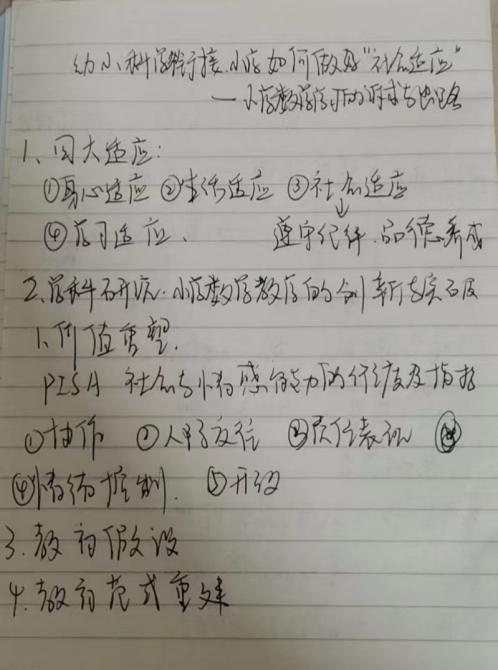 幼小科学衔接.小学如何做好"社会适应"
—小学数学学习的诉求与思路
1、四大适应:
①身心适应 ②生活适应 ③社会适应
↓
④学习适应、 遵守纪律.品德养成
2、学科研究.小学数学教学的创新与实践
1、价值重塑.
PISA 社会与情感能力的维度及指标
①协作 ②人际交往 ③责任表现
④情绪控制. ⑤开放
3、教材假设
4、教育范式重建